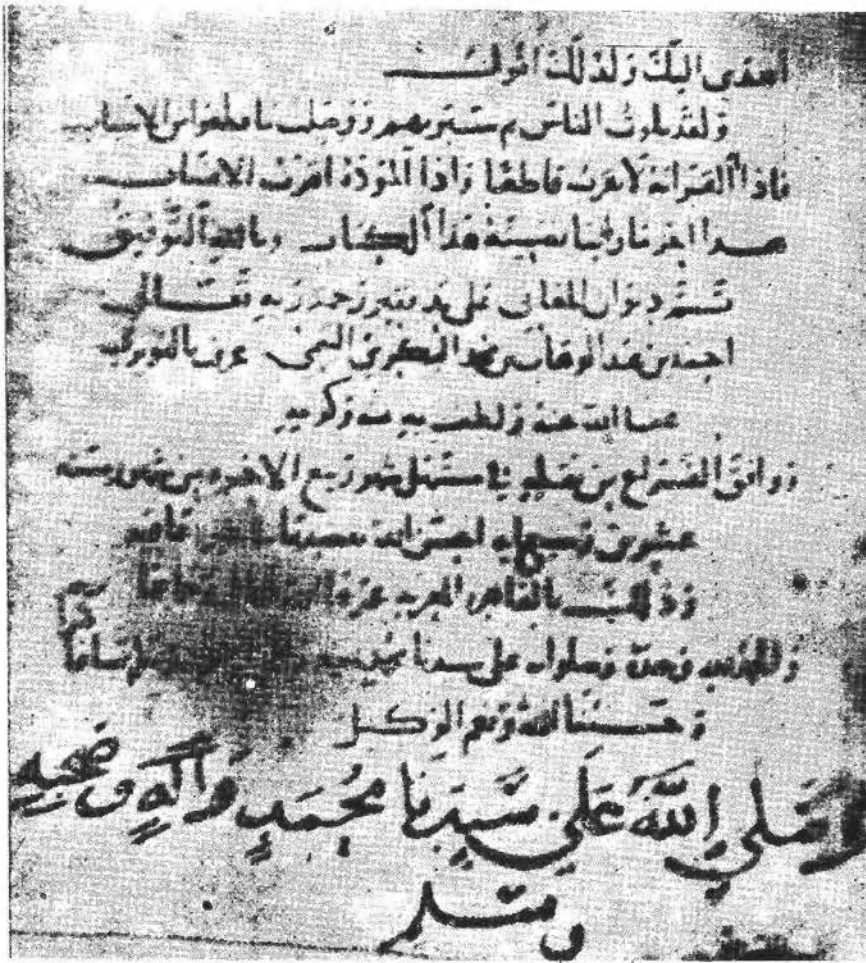 اهدى اليك ولذلك اقول
ولقد بلوت الناس ثم سبرتهم ووصلت ما قطعوا من الاسباب
فاذا القرابة لا تقرب قاطعا واذا المودة اقرب الانساب
هذا اخر ما رأينا هذا الكتاب وبالله التوفيق
ديوان المعاني على يد فقير رحمة ربه تعالى
احمد بن عبد الوهاب بن البكري التميمي عرف بالنويري
عفا الله عنه ولطف به بمنه وكرمه
ووافق الفراغ من في مستهل شهر ربيع الاخر من سنة
عشرين وسبعمايه احسن الله
وذلك بالقاهرة المعزية
والحمد لله وحده وصلواته على سيدنا محمد
وحسبنا الله ونعم الوكيل
وصلى الله على سيدنا محمد وآله وصحبه
وسلم